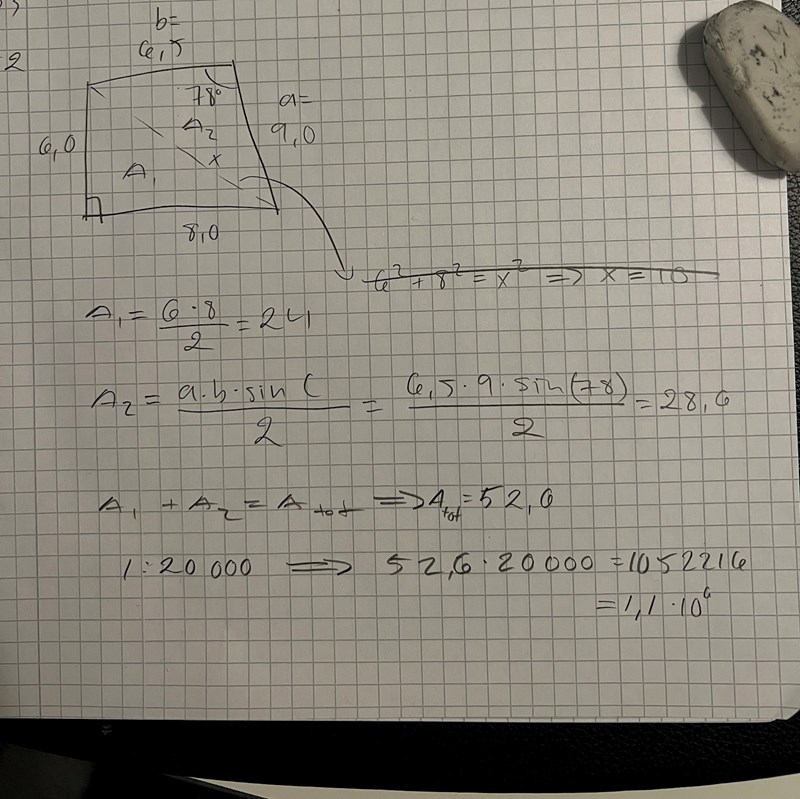 2
b=
6,5
78°
a=
9,0
A₂
6,0
x
A₁
8,0
6² + 8² = x² => x = 10
A₁ = (6·8)/2 = 24
A₂ = (a·b·sin C)/2 = (6,5·9·sin(78))/2 = 28,6
A₁ + A₂ = A tot => A tot = 52,6
1:20 000 => 52,6·20000 = 1052216
= 1,1·10⁶